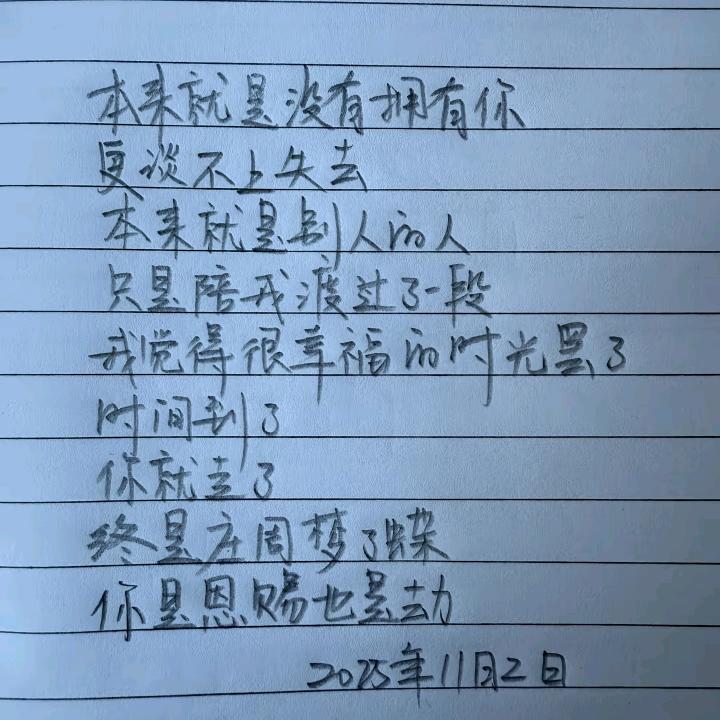 本来就是没有拥有你
更谈不上失去
本来就是别人的人
只是陪我渡过了一段
我觉得很幸福的时光罢了
时间到了
你就走了
终是庄周梦了蝶
你是恩赐也是劫
2025年11月2日